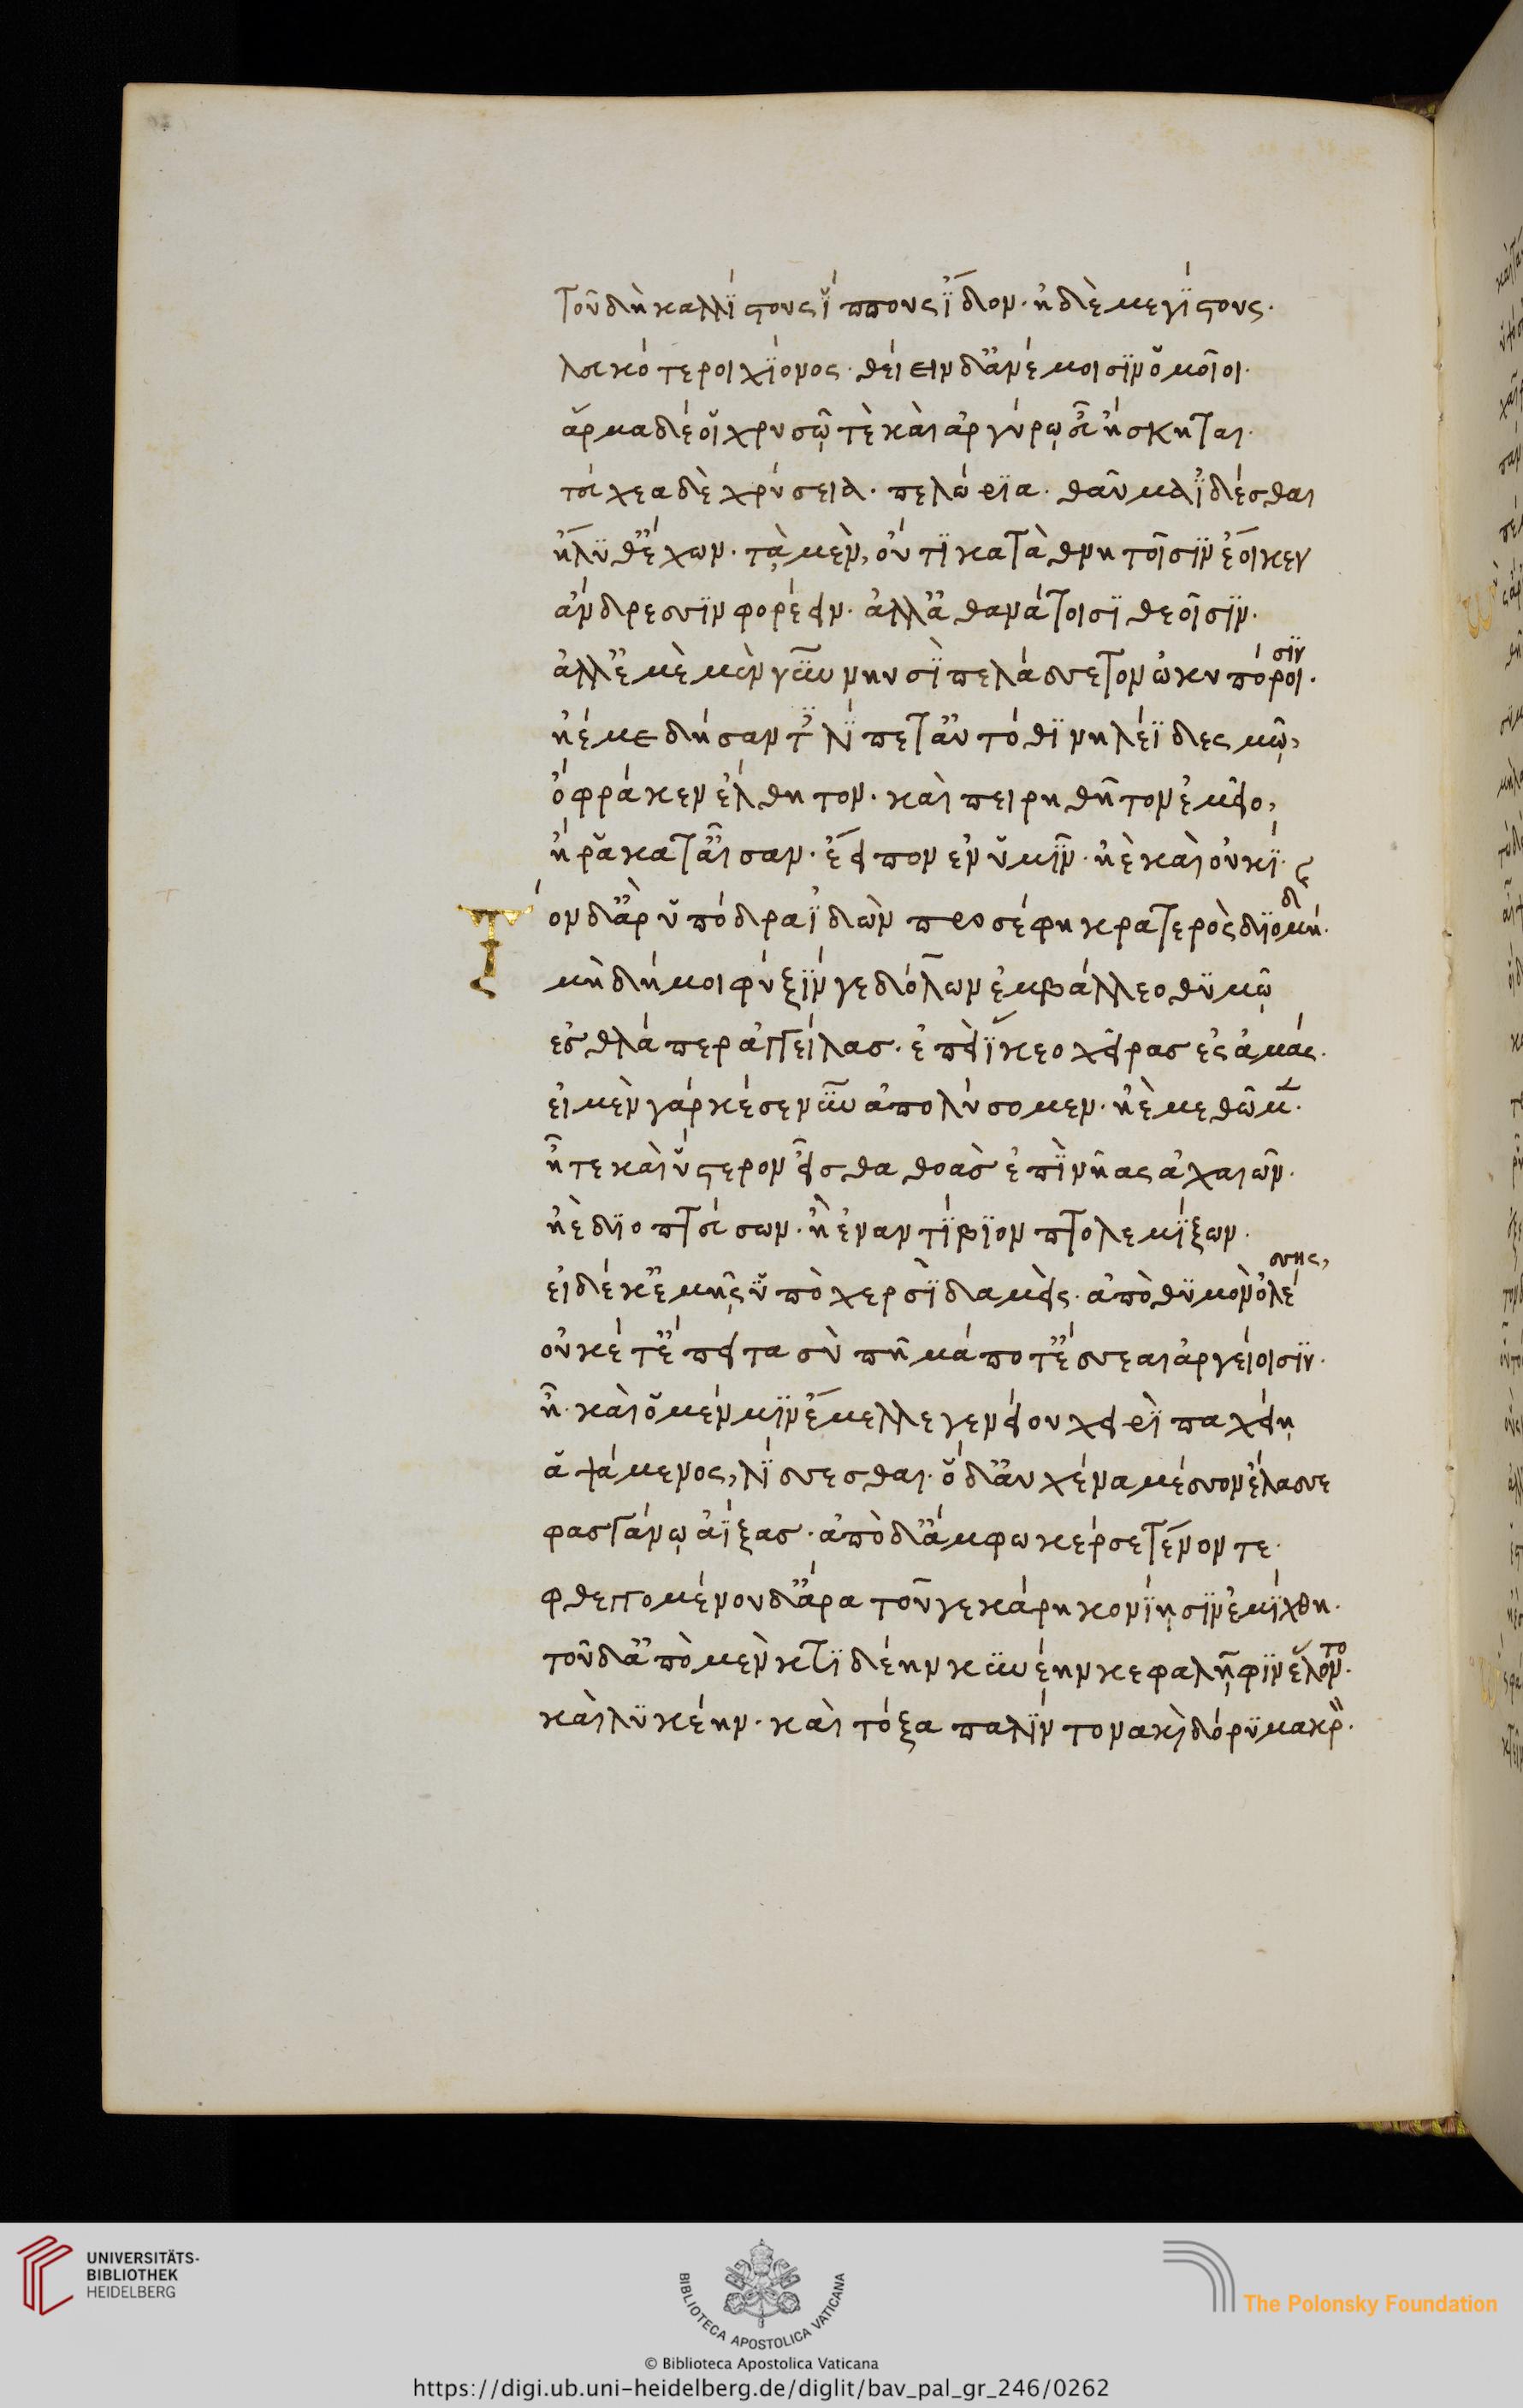 τοῦ δὴ καλλίστους ἵππους ἴδον· ἠδὲ μεγίστους·
λευκότεροι χιόνος· θείειν δ' ἀνέμοισιν ὁμοῖοι·
ἅρμα δέ οἱ χρυσῷ τὲ καὶ ἀργύρῳ εὖ ἤσκηται·
τεύχεα δὲ χρύσεια· πελώρια· θαῦμα ἰδέσθαι
ἤλυθ' ἔχων· τὰ μὲν, οὔ τι καταθνητοῖσιν ἔοικεν
ἄνδρεσσιν φορέειν· ἀλλ' ἀθανάτοισι θεοῖσιν·
ἀλλ' ἐμὲ μὲν νῦν νηυσὶ πελάσσετον ὠκυπόροισιν·
ἠέ με δήσαντες λίπετ' αὐτόθι νηλέϊ δεσμῷ,
ὄφρά κεν ἔλθητον· καὶ πειρηθῆτον ἐμεῖο,
ἤ ῥα κατ' αἶσαν· ἔειπον ἐν ὑμῖν· ἠὲ καὶ οὐκί·
Τὸν δ' ἄρ ὑπόδρα ἰδὼν προσέφη κρατερὸς διομήδης
μὴ δή μοι φύξιν γε δόλων ἐμβάλλεο θυμῷ
ἐσθλά περ ἀγγείλας· ἐπεὶ ἵκεο χεῖρας ἐς ἁμάς·
εἰ μὲν γάρ κέ σε νῦν ἀπολύσομεν· ἠὲ μεθῶμεν·
ἦ τε καὶ ὕστερον εἶσθα θοὰς ἐπὶ νῆας ἀχαιῶν·
ἠὲ διοπτεύσων· ἢ ἐναντίβιον πτολεμίξων·
εἰ δέ κ' ἐμῇς ὑπὸ χερσὶ δαμεὶς· ἀπὸ θυμὸν ὀλέσσῃς,
οὐκέτ' ἔπειτα σὺ πῆμά ποτ' ἔσσεαι ἀργείοισιν·
ἦ· καὶ ὁ μέν μιν ἔμελλε γενείου χειρὶ παχείῃ
ἁψάμενος, λίσσεσθαι· ὁ δ' αὐχένα μέσσον ἔλασσε
φασγάνῳ ἀΐξας· ἀπὸ δ' ἄμφω κέρσε τένοντε·
φθεγγομένου δ' ἄρα τοῦ γε κάρη κονίῃσιν ἐμίχθη·
τοῦ δ' ἀπὸ μὲν κτιδέην κυνέην κεφαλῆφιν ἕλοντο·
καὶ λυκέην· καὶ τόξα παλίντονα καὶ δόρυ μακρόν·
UNIVERSITÄTS-
BIBLIOTHEK
HEIDELBERG
BIBLIOTECA APOSTOLICA VATICANA
The Polonsky Foundation
© Biblioteca Apostolica Vaticana
https://digi.ub.uni-heidelberg.de/diglit/bav_pal_gr_246/0262